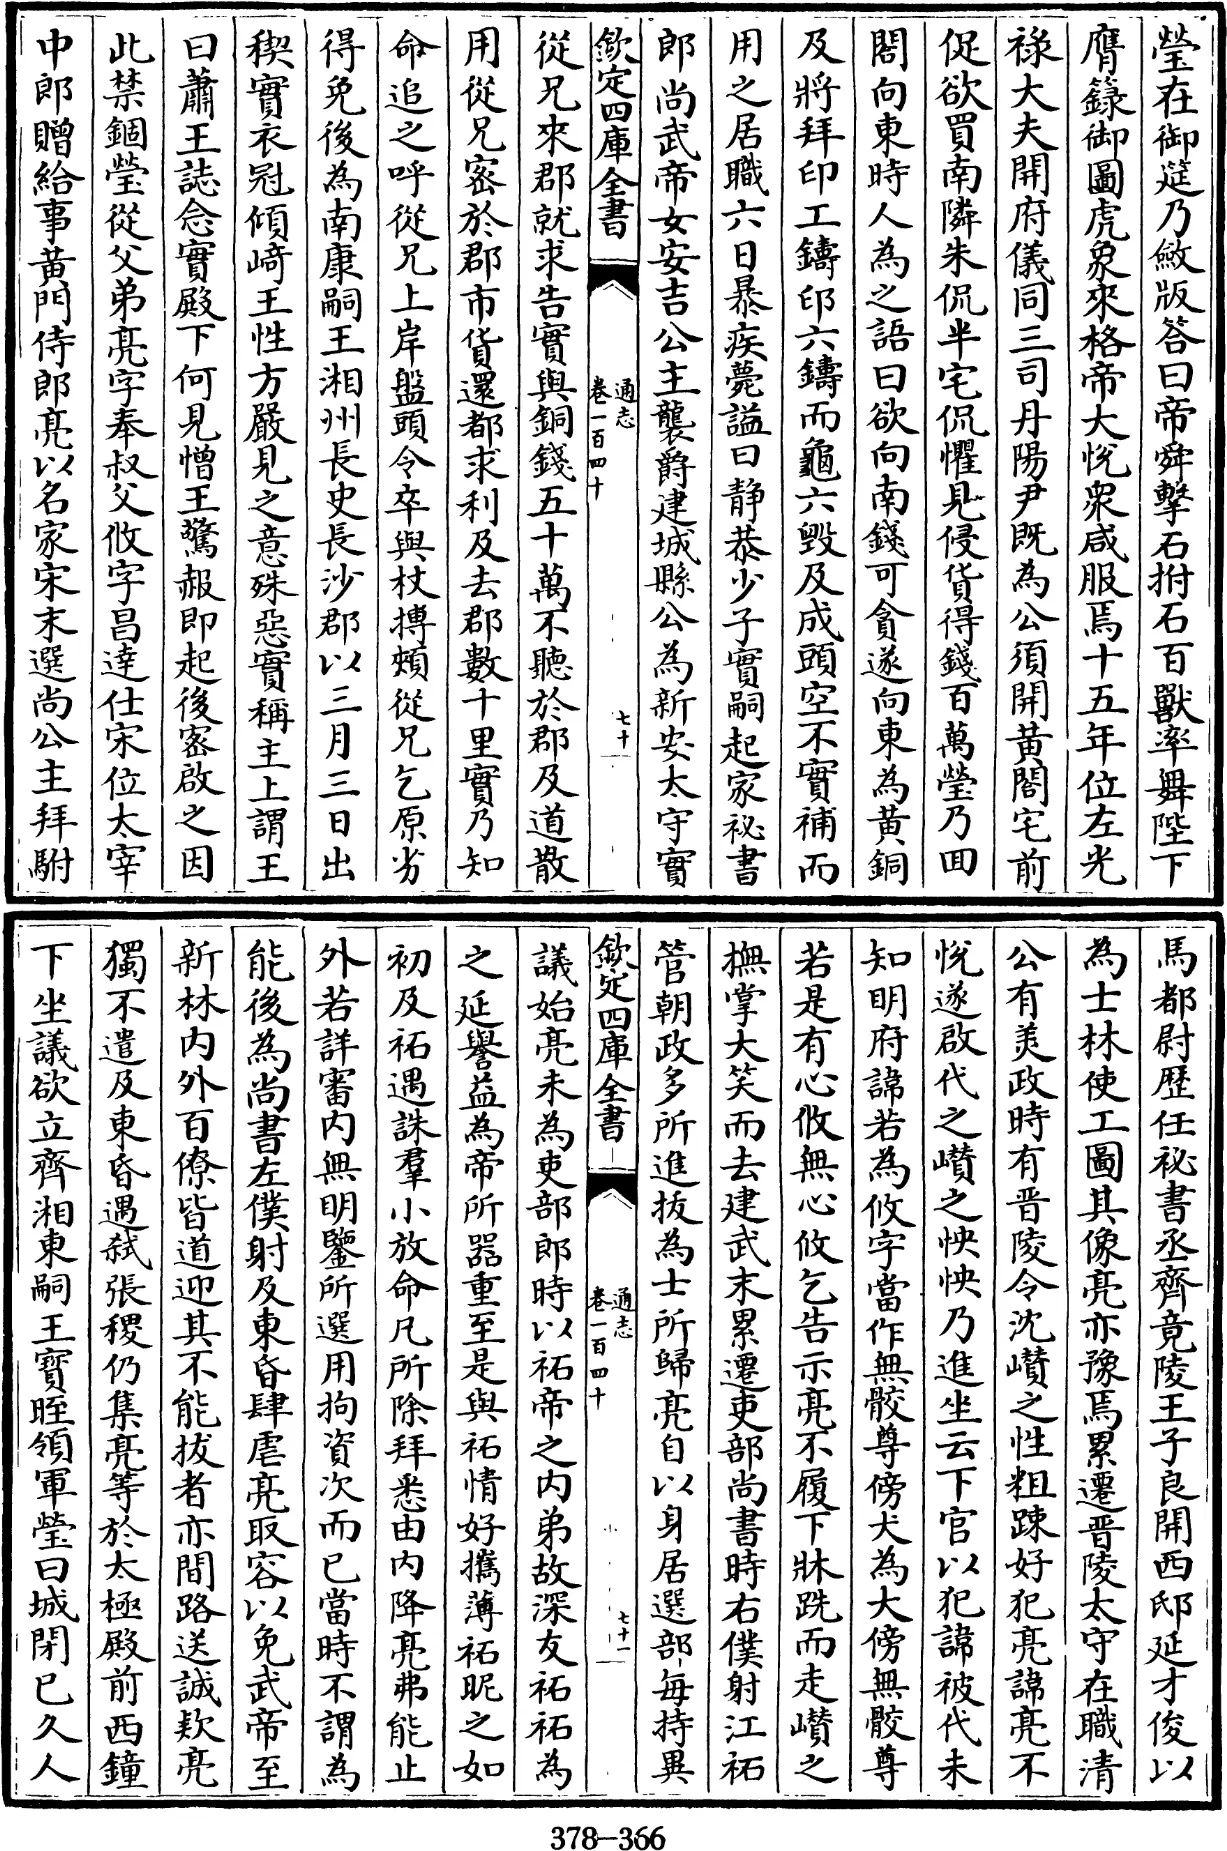 瑩在御筵乃斂版答曰帝舜擊石拊石百獸率舞陛下
膺籙御圖虎象來格帝大悅衆咸服焉十五年位左光
祿大夫開府儀同三司丹陽尹既為公須開黃閤宅前
促欲買南隣朱侃半宅侃懼見侵貨得錢百萬瑩乃回
閤向東時人為之語曰欲向南錢可貪遂向東為黃銅
及將拜印工鑄印六鑄而龜六毀及成頭空不實補而
用之居職六日暴疾薨諡曰静恭少子實嗣起家祕書
郎尚武帝女安吉公主襲爵建城縣公為新安太守實
欽定四庫全書
通志
卷一百四十
七十
從兄來郡就求告實與銅錢五十萬不聽於郡及道散
用從兄密於郡市貨還都求利及去郡數十里實乃知
命追之呼從兄上岸盤頭令卒與杖搏頰從兄乞原劣
得免後為南康嗣王湘州長史長沙郡以三月三日出
稧實衣冠傾﨑王性方嚴見之意殊惡實稱主上謂王
曰蕭王誌念實殿下何見憎王驚赧即起後密啟之因
此禁錮瑩從父弟亮字奉叔父攸字昌逹仕宋位太宰
中郎贈給事黃門侍郎亮以名家宋末選尚公主拜駙
馬都尉歷任祕書丞齊竟陵王子良開西邸延才俊以
為士林使工圖其像亮亦豫焉累遷晋陵太守在職清
公有美政時有晋陵令沈巑之性粗踈好犯亮諱亮不
悅遂啟代之巑之怏怏乃進坐云下官以犯諱被代未
知明府諱若為攸字當作無骹尊傍犬為犬傍無骹尊
若是有心攸無心攸乞告示亮不履下牀跣而走巑之
撫掌大笑而去建武末累遷吏部尚書時右僕射江祏
管朝政多所進拔為士所歸亮自以身居選部每持異
欽定四庫全書
通志
卷一百四十
七十一
議始亮未為吏部郎時以祏帝之內弟故深友祏祏為
之延譽益為帝所器重至是與祏情好攜薄祏昵之如
初及祏遇誅羣小放命凡所除拜悉由内降亮弗能止
外若詳審内無明鑒所選用拘資次而已當時不謂為
能後為尚書左僕射及東昏肆虐亮取容以免武帝至
新林内外百僚皆道迎其不能拔者亦間路送誠欵亮
獨不遣及東昏遇弑張稷仍集亮等於太極殿前西鐘
下坐議欲立齊湘東嗣王寳晊領軍瑩曰城閉已久人
378-366